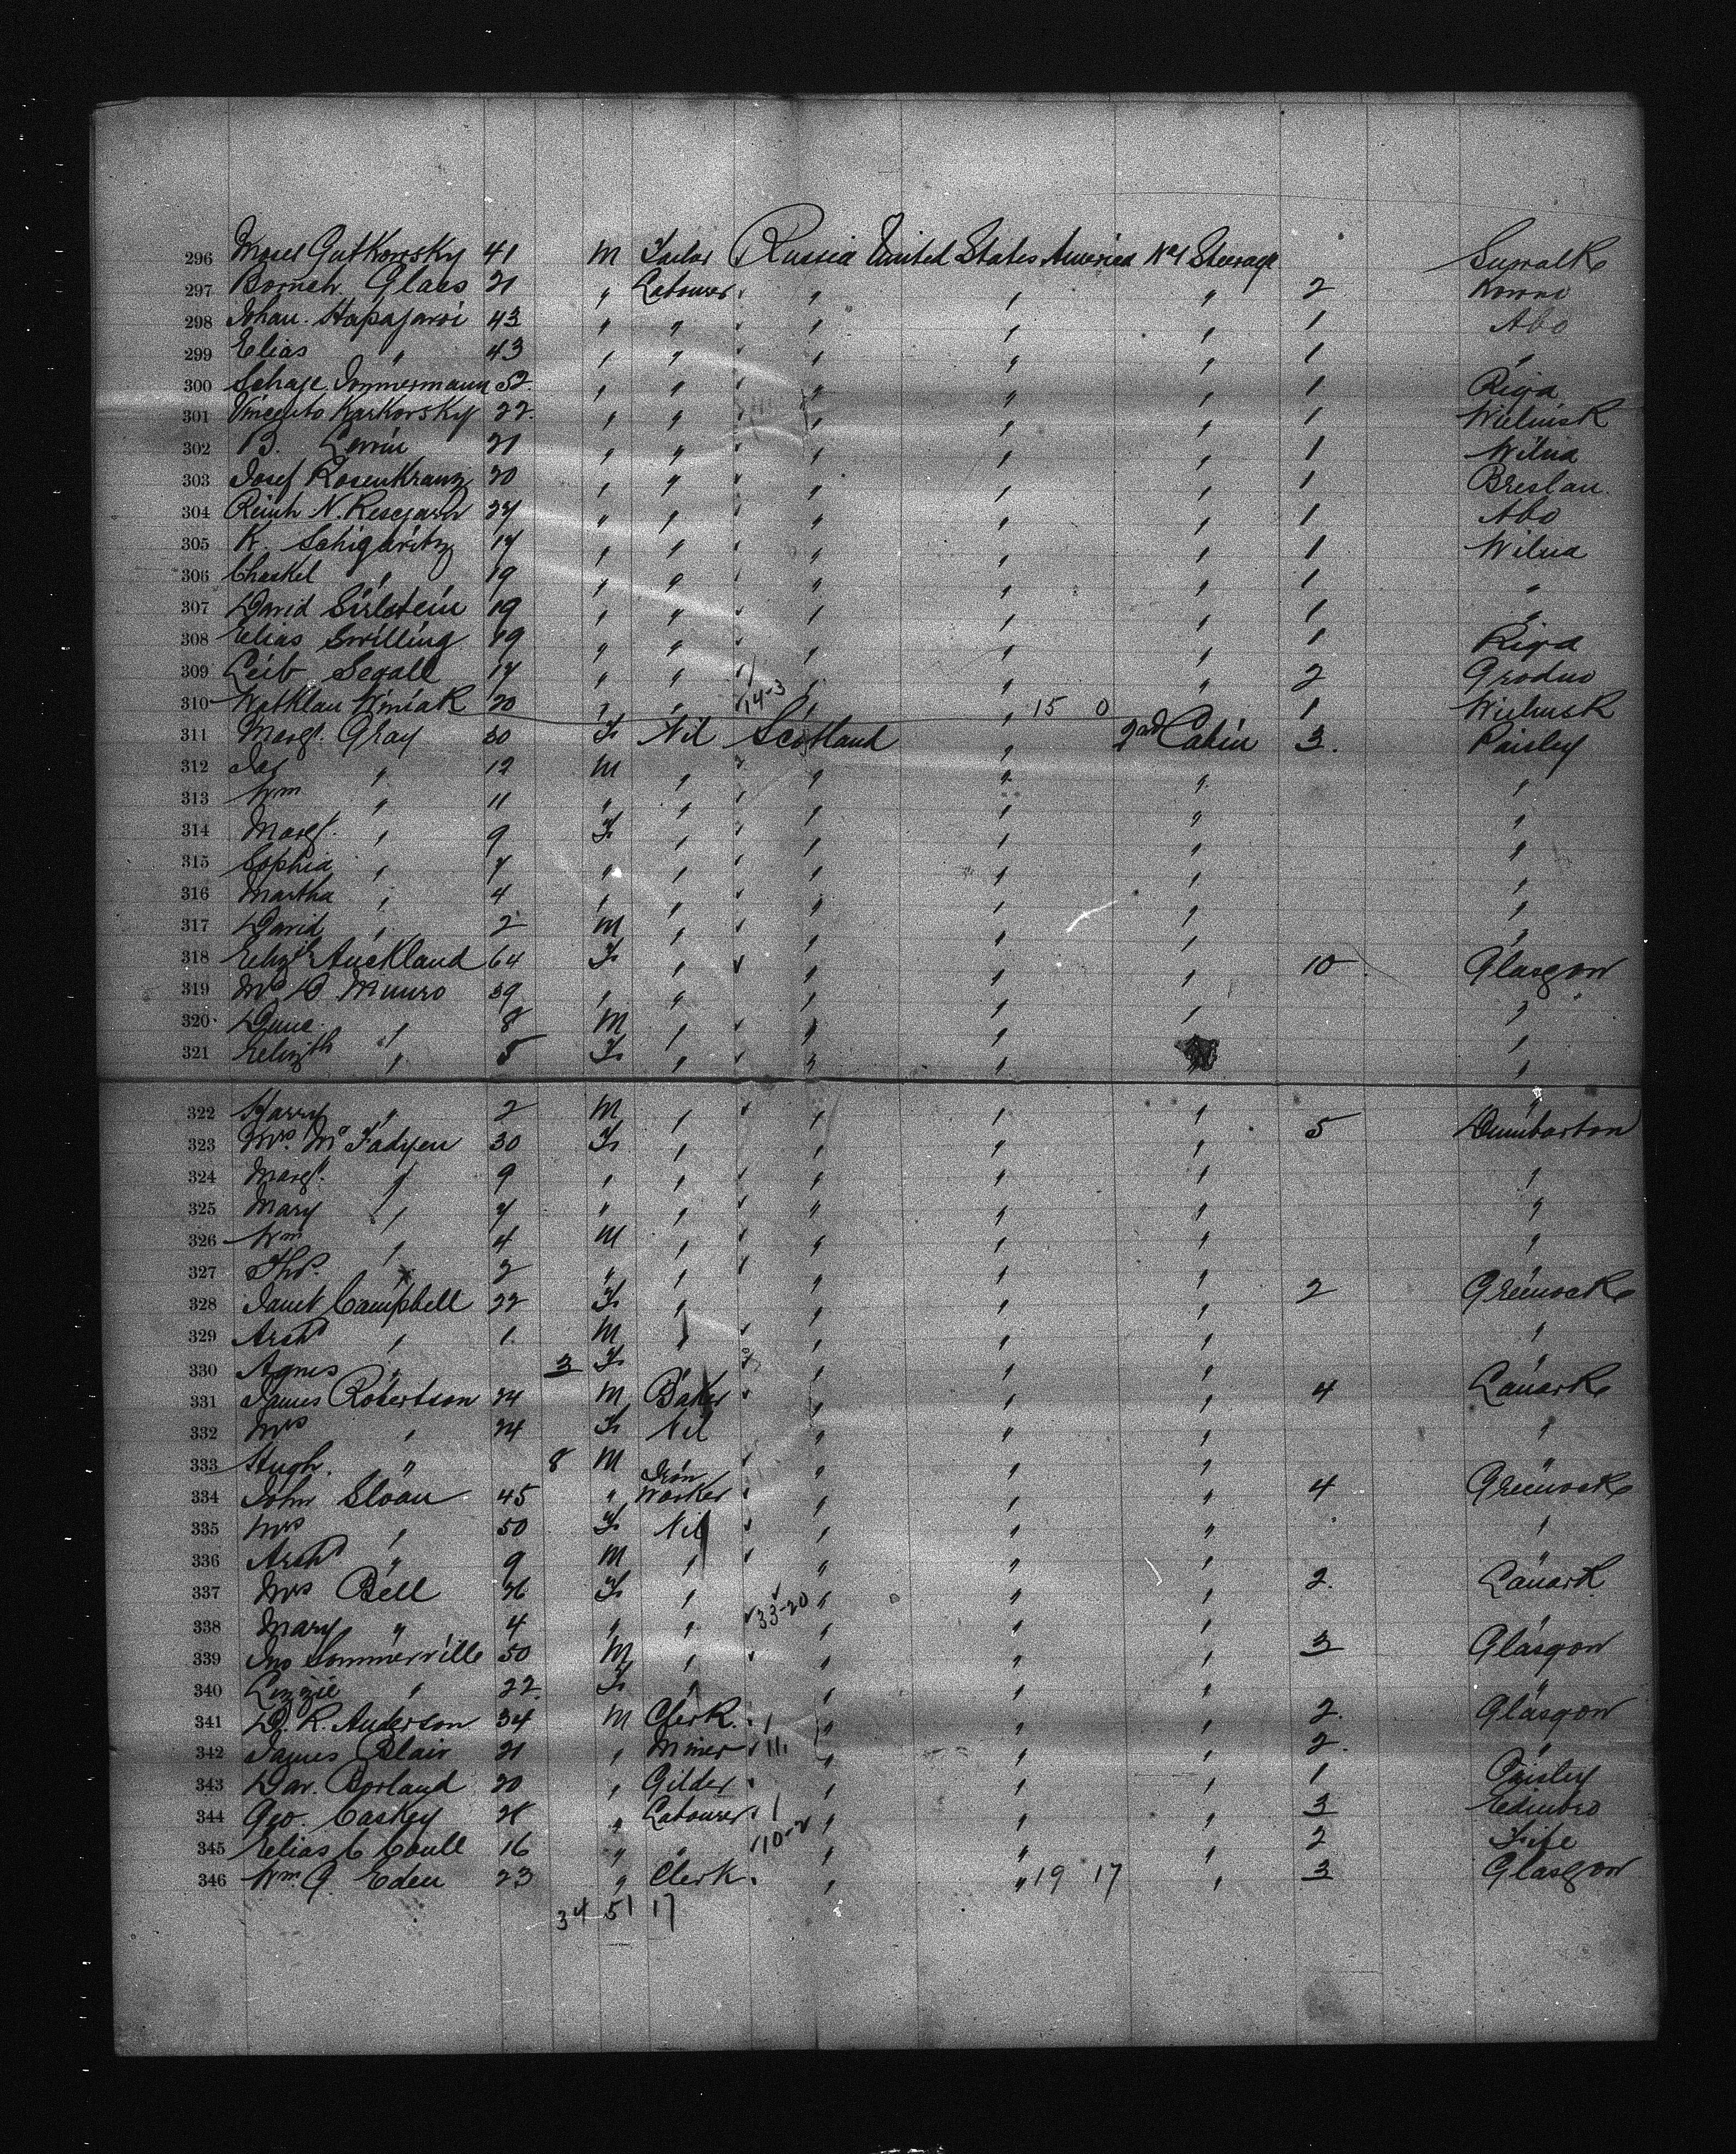 296 Moses Gutkowsky 41 M Tailor Russia United States America No 1 Steerage Suwalk
297 Boruch Glass 21 " Labourer " " " 2 Kowno
298 Johan Hapajarvi 43 " " " " " 1 Abo
299 Elias " 43 " " " " " 1 "
300 Schaje 52 " " " " " 1 Riga
301 Vincento Karkovsky 22 " " " " " 1
302 B. Lewin 21 " " " " " 1 Wilna
303 Josef Rosenkranz 20 " " " " " 1 Breslau
304 N. 24 " " " " " 1 Abo
305 K. 17 " " " " " 1 Wilna
306 Chaskel " 19 " " " " " 1 "
307 David 19 " " " " " 1 "
308 Elias Swilling 19 " " " " " 1 Riga
309 Leib Segall 17 " " " " " 2 Grodno
310 Winiak 20 " " 14-3 " " 15 0 1
311 Margt. Gray 30 F Nil Scotland " 2nd Cabin 3 Paisley
312 Jas " 12 M " " " " "
313 Wm " 11 " " " " " "
314 Margt. " 9 F " " " " "
315 Sophia " 7 " " " " " "
316 Martha " 4 " " " " " "
317 David " 2 M " " " " "
318 Elizth Auckland 64 F " " " " 10 Glasgow
319 Mrs D Munro 39 " " " " " "
320 Dunc. " 8 M " " " " "
321 Elizth " 5 F " " " " "
322 Harry " 2 M " " " "
323 Mrs. McFadyen 30 F " " " " 5 Dumbarton
324 Margt. " 9 " " " " " "
325 Mary " 7 " " " " " "
326 Wm " 4 M " " " " "
327 Thos. " 2 " " " " " "
328 Janet Campbell 22 F " " " " 2 Greenock
329 Archd " 1 M " " " " "
330 Agnes " 3 F " " " "
331 James Robertson 24 M Baker " " " 4 Lanark
332 Mrs " 24 F Nil " " " "
333 Hugh " 8 M " " " "
334 John Sloan 45 " Iron Worker " " " 4 Greenock
335 Mrs " 50 F Nil " " " "
336 Archd " 9 M " " " " "
337 Mrs Bell 26 F " " " " 2 Lanark
338 Mary " 4 " " 33-20 " " "
339 Jno Sommerville 50 M " " " " 3 Glasgow
340 Lizzie " 22 F " " " " "
341 D. R. Anderson 34 M Clerk " " " 2 Glasgow
342 James Blair 21 " Miner " " " 2 "
343 Dav. Borland 20 " Gilder " " " 1 Paisley
344 Geo. Caskey 28 " Labourer " " " 3 Edinbro
345 Elias C Coull 16 " " 10-2 " " " 2 Fife
346 Wm. G. Eden 23 " Clerk " " 19 17 " 3 Glasgow
34 51 17